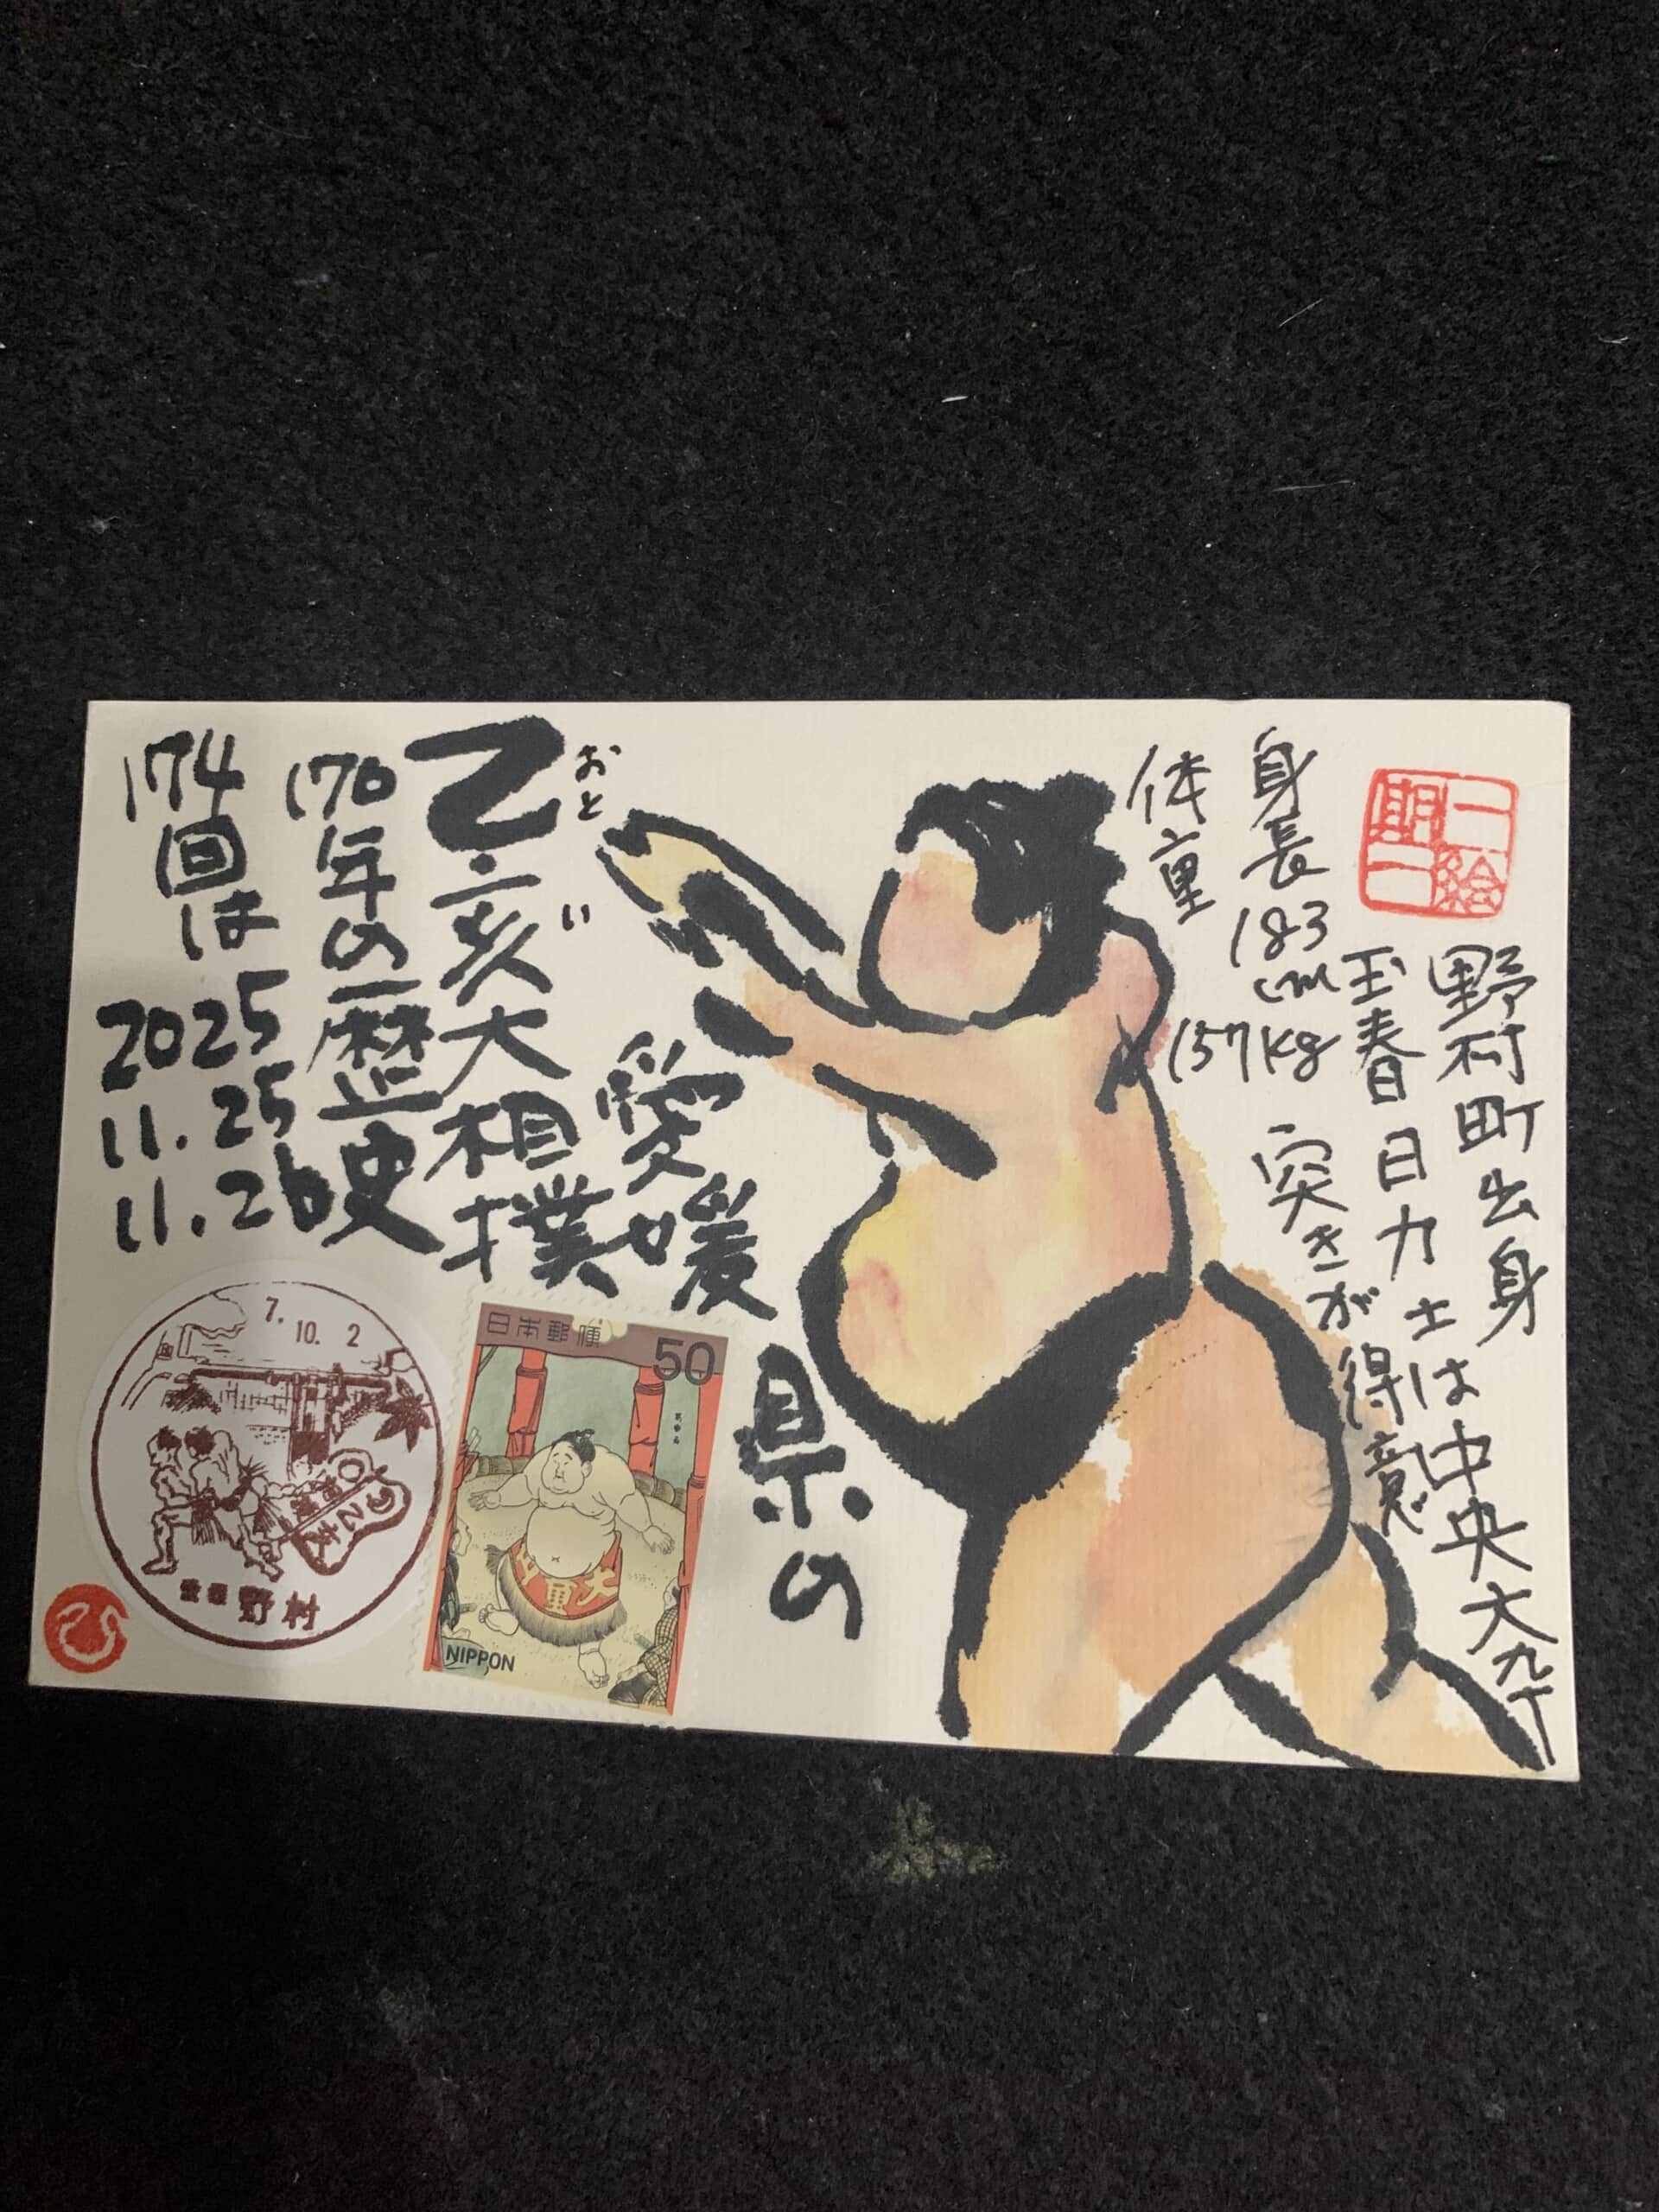 一期一絵
野村町出身
玉春日力士は中央大卆
身長183cm
体重157kg
突きが得意
愛媛県の
乙亥大相撲
おと
い
170年の歴史
174回は
2025
11.25
11.26
7.10.2
愛媛野村
日本郵便
50
大頂山
NIPPON